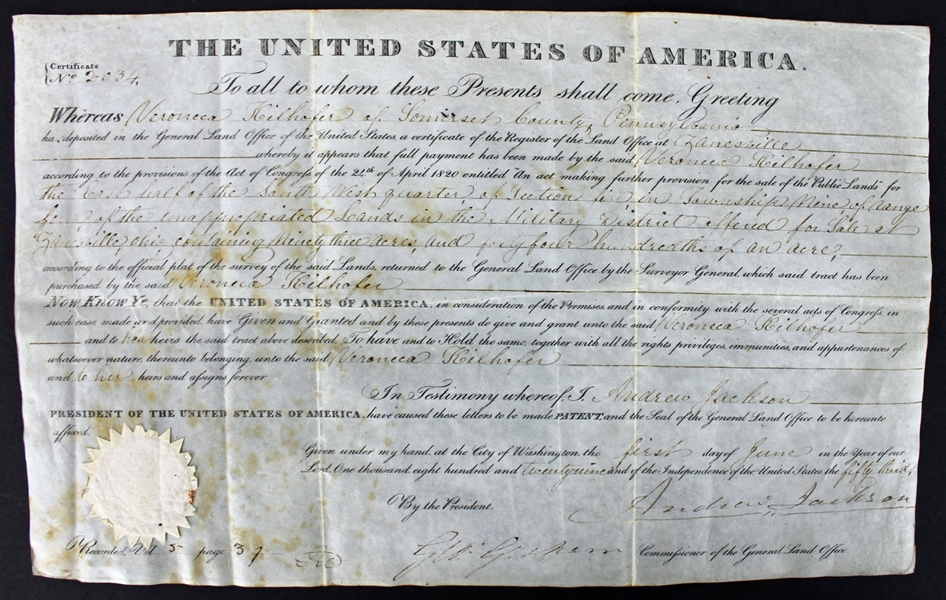 THE UNITED STATES OF AMERICA.
Certificate
No 2034.
To all to whom these Presents shall come, Greeting
Whereas Veroneca Hilhofer of Somerset County, Pennsylvania
has deposited in the General Land Office of the United States, a certificate of the Register of the Land Office at Zanesville
whereby it appears that full payment has been made by the said Veroneca Hilhofer
according to the provisions of the Act of Congress of the 24th of April 1820 entitled "An act making further provision for the sale of the Public Lands" for
the East half of the South West quarter of Section in Township Nine of Range
of the unappropriated Lands in the Military District offered for Sale at
Zanesville Ohio containing Ninety three acres and forty four hundredths of an acre,
according to the official plat of the survey of the said Lands, returned to the General Land Office by the Surveyor General, which said tract has been
purchased by the said Veroneca Hilhofer
Now Know Ye, that the UNITED STATES OF AMERICA, in consideration of the Premises, and in conformity with the several acts of Congress, in
such case made and provided, have Given and Granted and by these presents do give and grant unto the said Veroneca Hilhofer
and to her heirs the said tract above described: To have and to Hold the same, together with all the rights, privileges, immunities, and appurtenances of
whatsoever nature, thereunto belonging, unto the said Veroneca Hilhofer
and to her heirs and assigns forever.
In Testimony whereof, I, Andrew Jackson
PRESIDENT OF THE UNITED STATES OF AMERICA, have caused these letters to be made PATENT, and the Seal of the General Land Office to be hereunto
affixed.
Given under my hand, at the City of Washington, the first day of June in the Year of our
Lord, One thousand, eight hundred and twenty nine and of the Independence of the United States the fifty third.
Andrew Jackson
By the President.
Commissioner of the General Land Office
Recorded, Vol 5 page 37